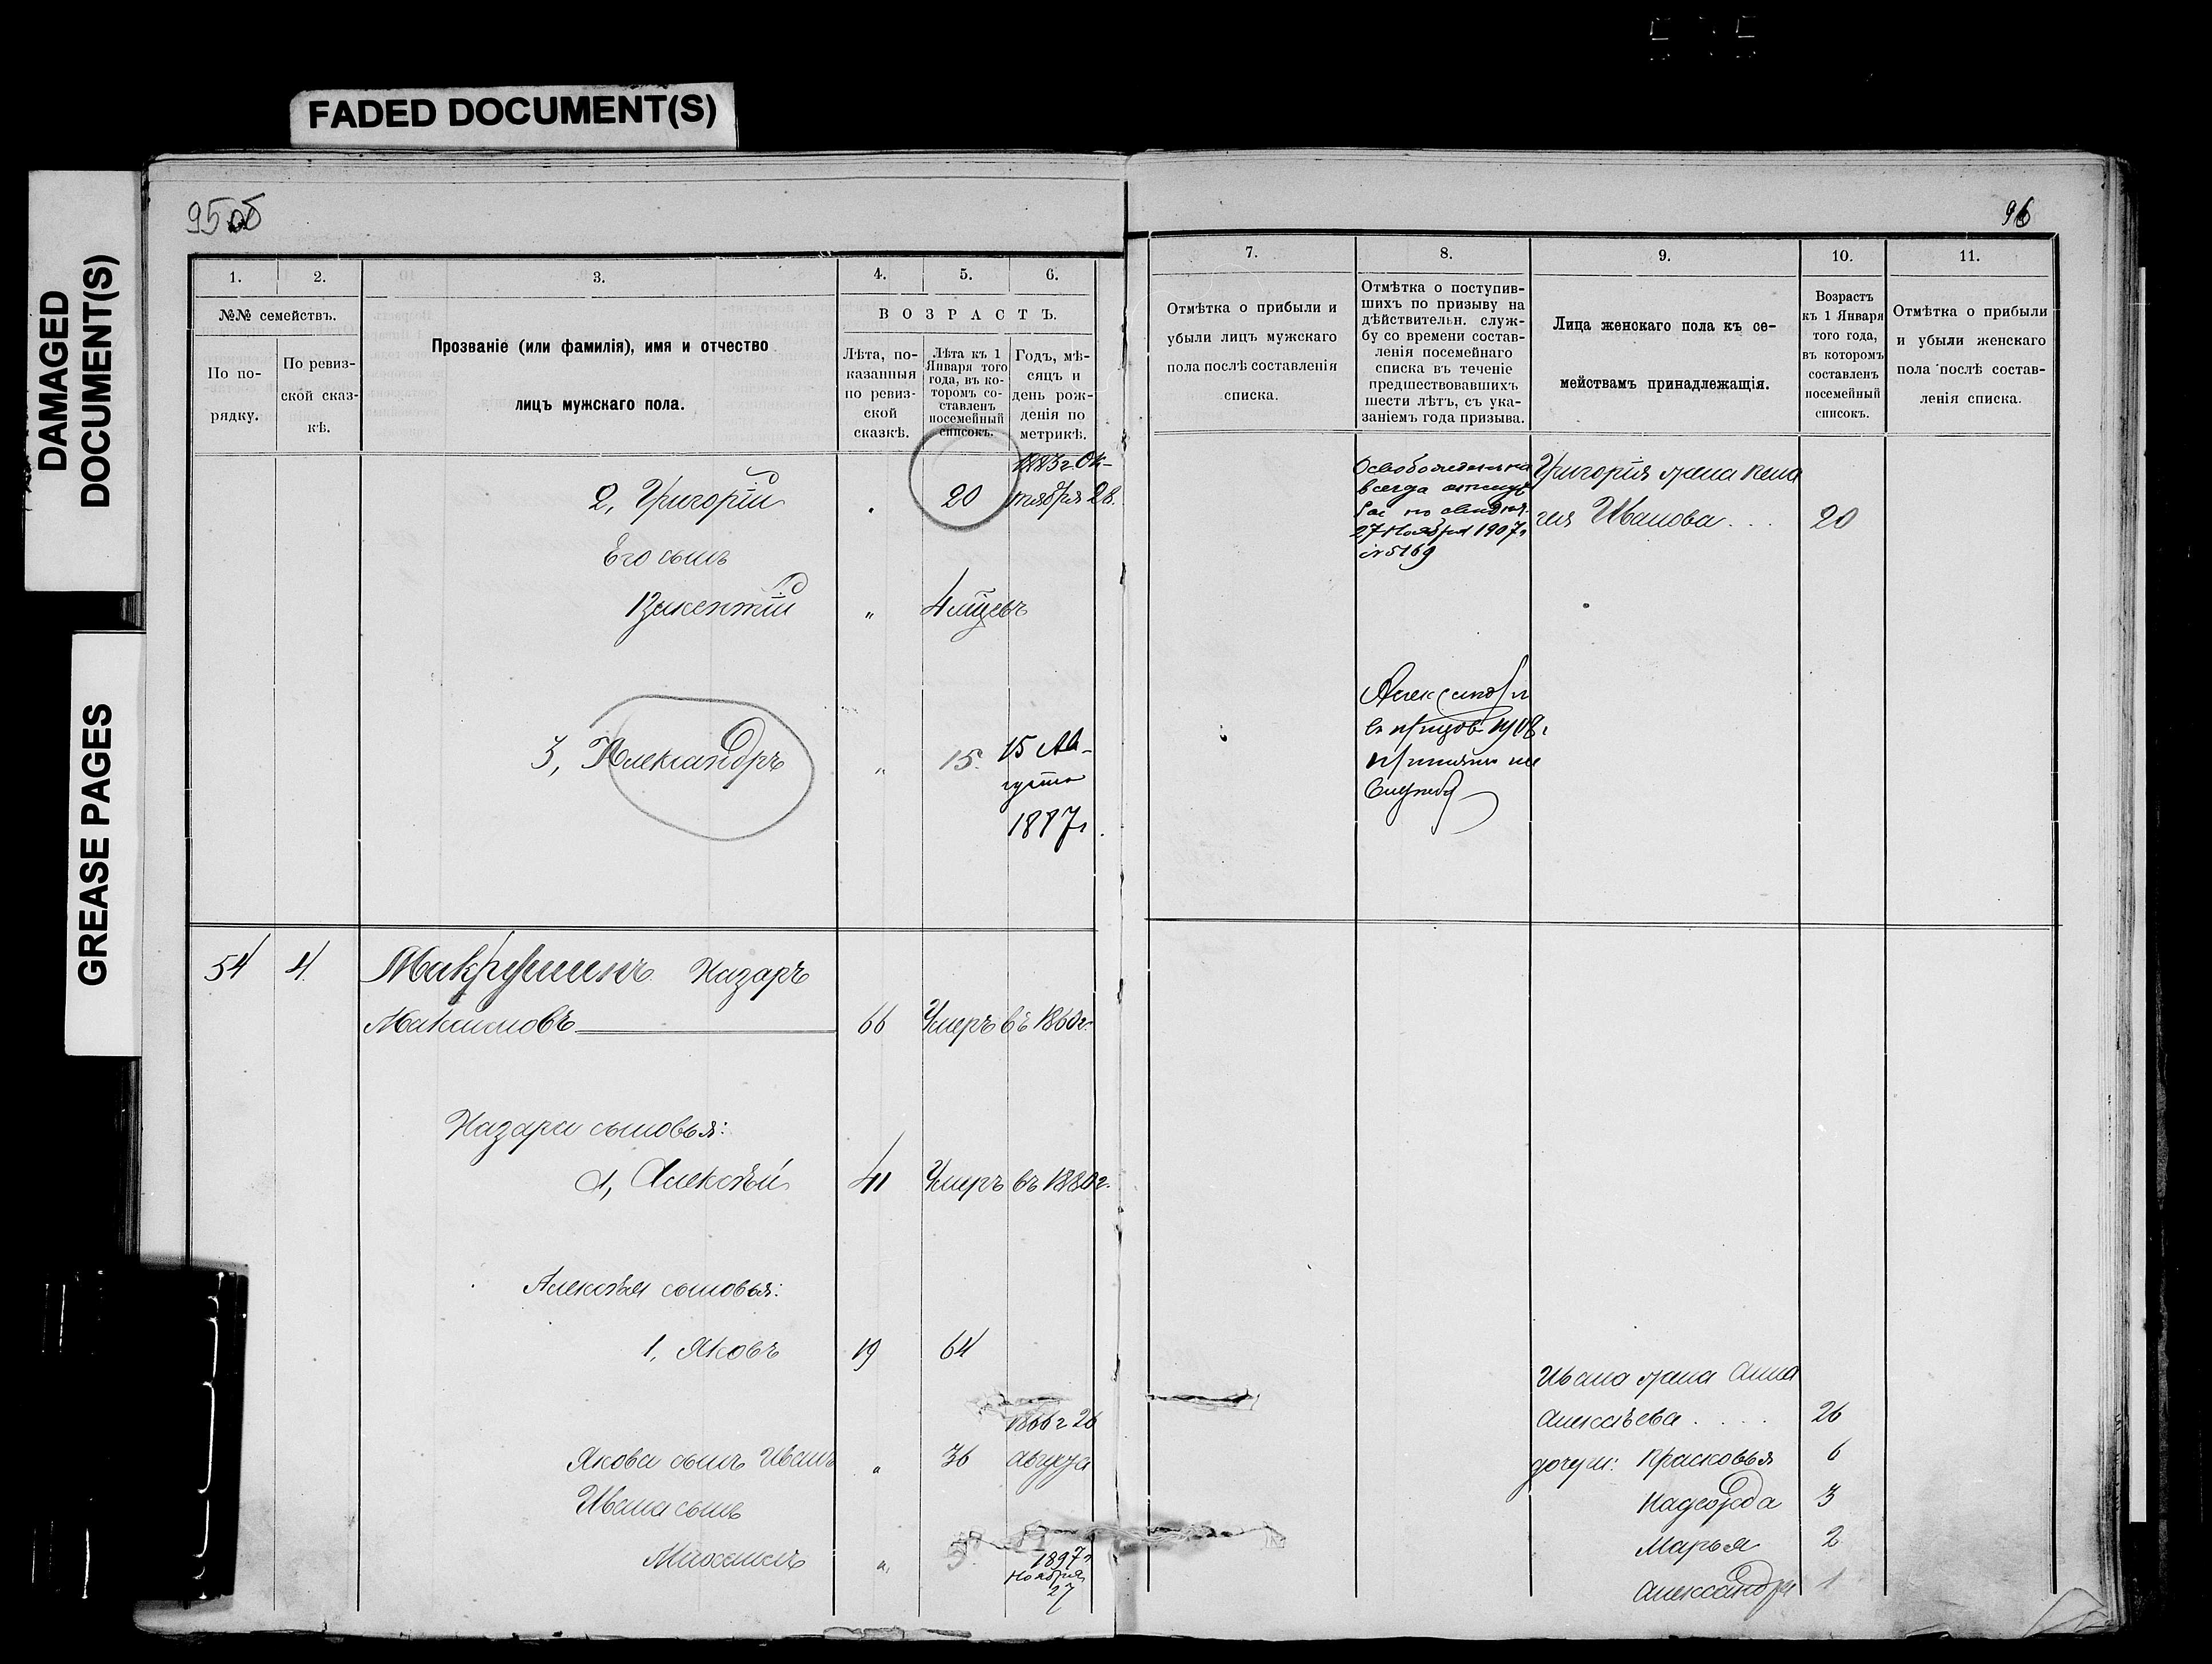 FADED DOCUMENT(S)
DAMAGED
DOCUMENT(S)
GREASE PAGES
95 об
96
1.
2.
3.
4.
5.
6.
№№ семействъ.
По по-
рядку.
По ревиз-
ской сказ-
кѣ.
Прозваніе (или фамилія), имя и отчество
лицъ мужскаго пола.
ВОЗРАСТЪ.
Лѣта, по-
казанныя
по ревиз-
ской
сказкѣ.
Лѣта къ 1
Января того
года, въ ко-
торомъ со-
ставленъ
посемейный
списокъ.
Годъ, мѣ-
сяцъ и
день рож-
денія по
метрикѣ.
7.
8.
9.
10.
11.
Отмѣтка о прибыли и
убыли лицъ мужскаго
пола послѣ составленія
списка.
Отмѣтка о поступив-
шихъ по призыву на
дѣйствительн. служ-
бу со времени состав-
ленія посемейнаго
списка въ теченіе
предшествовавшихъ
шести лѣтъ, съ ука-
заніемъ года призыва.
Лица женскаго пола къ се-
мействамъ принадлежащія.
Возрастъ
къ 1 Января
того года,
въ которомъ
составленъ
посемейный
списокъ.
Отмѣтка о прибыли
и убыли женскаго
пола послѣ состав-
ленія списка.
2, Григорій
20
1883 г Ок-
тября 28.
Его сынъ
Викентій
"
4 мѣс
3, Александръ
"
15.
15 Ав-
густа
1887 г.
27 Ноября 1907 г
№ 5169
Григорія жена
Иванова . . .
20
Александръ
въ призывъ 1908 г
принятъ на
службу
54
4.
Макрушинъ Назаръ
Максимовъ
66
Умеръ въ 1860 г.
Назара сыновья:
1, Алексѣй
41
Умеръ въ 1880 г.
Алексѣя сыновья:
1, Яковъ
19
64
1866 г 26
августа
Якова сынъ Иванъ
"
36
Ивана сынъ
Михаилъ
"
5
1897 г
Ноября
27
Ивана жена Анна
Алексѣева . . . .
26
дочери: Прасковья
6
Надежда
3
Марья
2
Александра
1